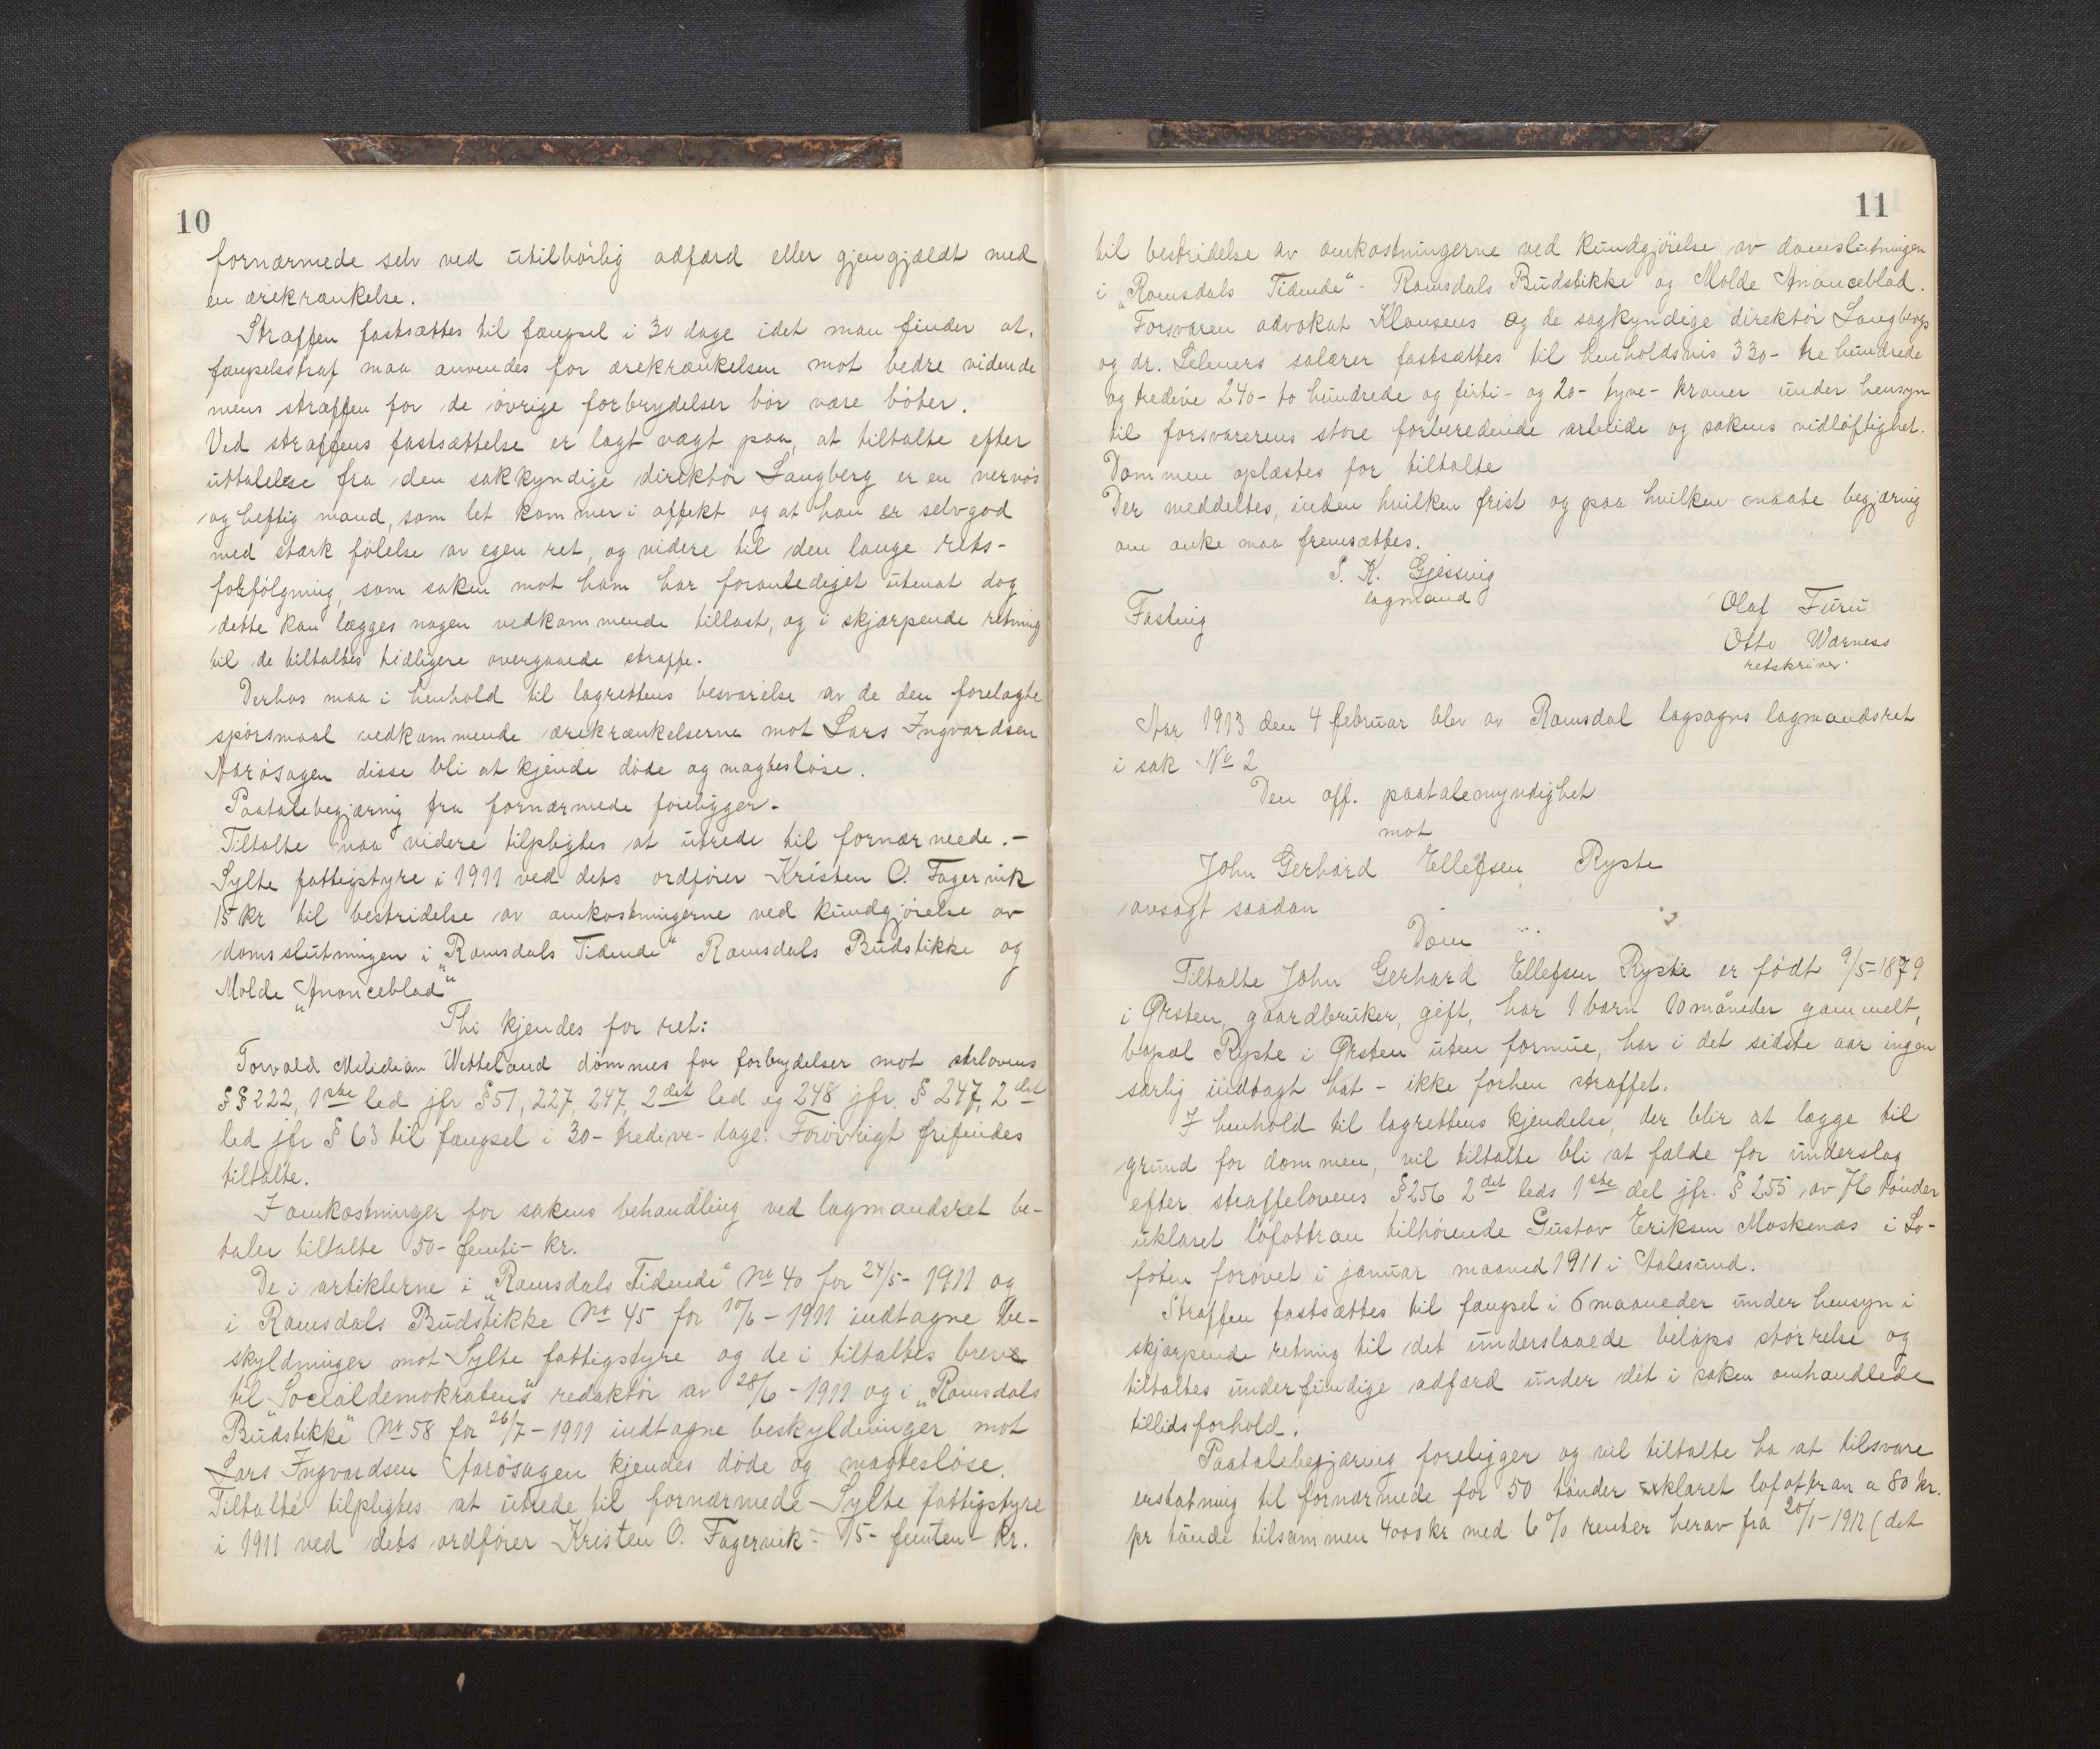 10
fornærmede selv ved utilbørlig adfærd eller gjengjældt med
en ærekrænkelse.
Straffen fastsættes til fængsel i 30 dage idet man finder at.
fængselsstraf maa anvendes for ærekrænkelsen mot bedre vidende
mens straffen for de øvrige forbrydelser bør være bøter.
Ved straffens fastsættelse er lagt vægt paa, at tiltalte efter
uttalelse fra den sakkyndige direktør Langberg er en nervøs
og heftig mand, som let kommer i affekt og at han er selvgod
med stærk følelse av egen ret, og videre til den lange rets-
forfølgning, som saken mot ham har foranlediget utenat dog
dette kan lægges nogen vedkommende tillast, og i skjærpende retning
til de tiltaltes tidligere overgaaede straffe.
Derhos maa i henhold til lagrettens besvarelse av de den forelagte
spørsmaal vedkommende ærekrænkelserne mot Lars Ingvardsen
Aarøsagen disse bli at kjende døde og magtesløse.
Paatalebegjæring fra fornærmede foreligger.
Tiltalte maa videre tilpligtes at utrede til fornærmede.-
Sylte fattigstyre i 1911 ved dets ordfører Kristen O. Fagervik
15 kr til bestridelse av omkostningerne ved kundgjørelse av
domsslutningen i „Romsdals Tidende“ Romsdals Budstikke og
Molde „Anonceblad“
Thi kjendes for ret:
Torvald Milidian Vetteland dømmes for forbrydelser mot strlovens
§§ 222, 1ste led jfr § 51, 227, 247, 2det led og 248 jfr. § 247, 2det
led jfr § 63 til fængsel i 30- tredive- dage. Forøvrigt frifindes
tiltalte.
I omkostninger for sakens behandling ved lagmandsret be-
taler tiltalte 50- femti- kr.
De i artiklerne i „Romsdals Tidende“ No 40 for 24/5- 1911 og
i Romsdals Budstikke No 45 for 10/6 - 1911 indtagne be-
skyldninger mot Sylte fattigstyre og de i tiltaltes breve
til „Socialdemokratens“ redaktør av 28/6 - 1911 og i „Romsdals
Budstikke“ No 58 for 26/7 - 1911 indtagne beskyldninger mot
Lars Ingvardsen Aarøsagen kjendes døde og magtesløse.
Tiltalte tilpligtes at utrede til fornærmede - Sylte fattigstyre
i 1911 ved dets ordfører Kristen O. Fagervik - 15- femten- kr.
11
til bestridelse av omkostningerne ved kundgjørelse av domslutningen
i „Romsdals Tidende“ - Romsdals Budstikke og Molde Anonceblad.
Forsvaren advokat Klausens og de sagkyndige direktør Langbergs
og dr. Selmers salærer fastsættes til henholdsvis 330- tre hundrede
og tredive 240- to hundrede og firti- og 20- tyve- kroner under hensyn
til forsvarerens store forberedende arbeide og sakens vidløftighet.
Dommen oplæstes for tiltalte
Der meddeltes, inden hvilken frist og paa hvilken maate begjæring
om anke maa fremsættes.
S. K. Gjessing
lagmand
Fasting
Olaf Furu
Otto Warness
retskriver.
Aar 1913 den 4 februar blev av Romsdal lagsogns lagmandsret
i sak No 2
Den off. paatalemyndighet
mot
John Gerhard Ellefsen Ryste
avsagt saadan
Dom
Tiltalte John Gerhard Ellefsen Ryste er født 9/5-1879
i Ørsten, gaardbruker, gift, har 1 barn 10 måneder gammelt,
bopæl Ryste i Ørsten uten formue, har i det sidste aar ingen
særlig indtægt hat - ikke forhen straffet.
I henhold til lagrettens kjendelse, der blir at lægge til
grund for dommen, vil tiltalte bli at fælde for underslag
efter straffelovens § 256 2det leds 1ste del jfr. § 255 av 76 tønder
uklaret lofottran tilhørende Gustav Eriksen Moskenæs i Lo-
foten forøvet i januar maaned 1911 i Aalesund.
Straffen fastsættes til fængsel i 6 maaneder under hensyn i
skjærpende retning til det underslaaede beløps størrelse og
tiltaltes underfundige adfærd under det i saken omhandlede
tillidsforhold.
Paatalebegjæring foreligger og vil tiltalte ha at tilsvare
erstatning til fornærmede for 50 tønder uklaret lofottran a 80 kr.
pr tønde tilsammen 4000 kr med 6 % renter herav fra 20/1-1912 (det